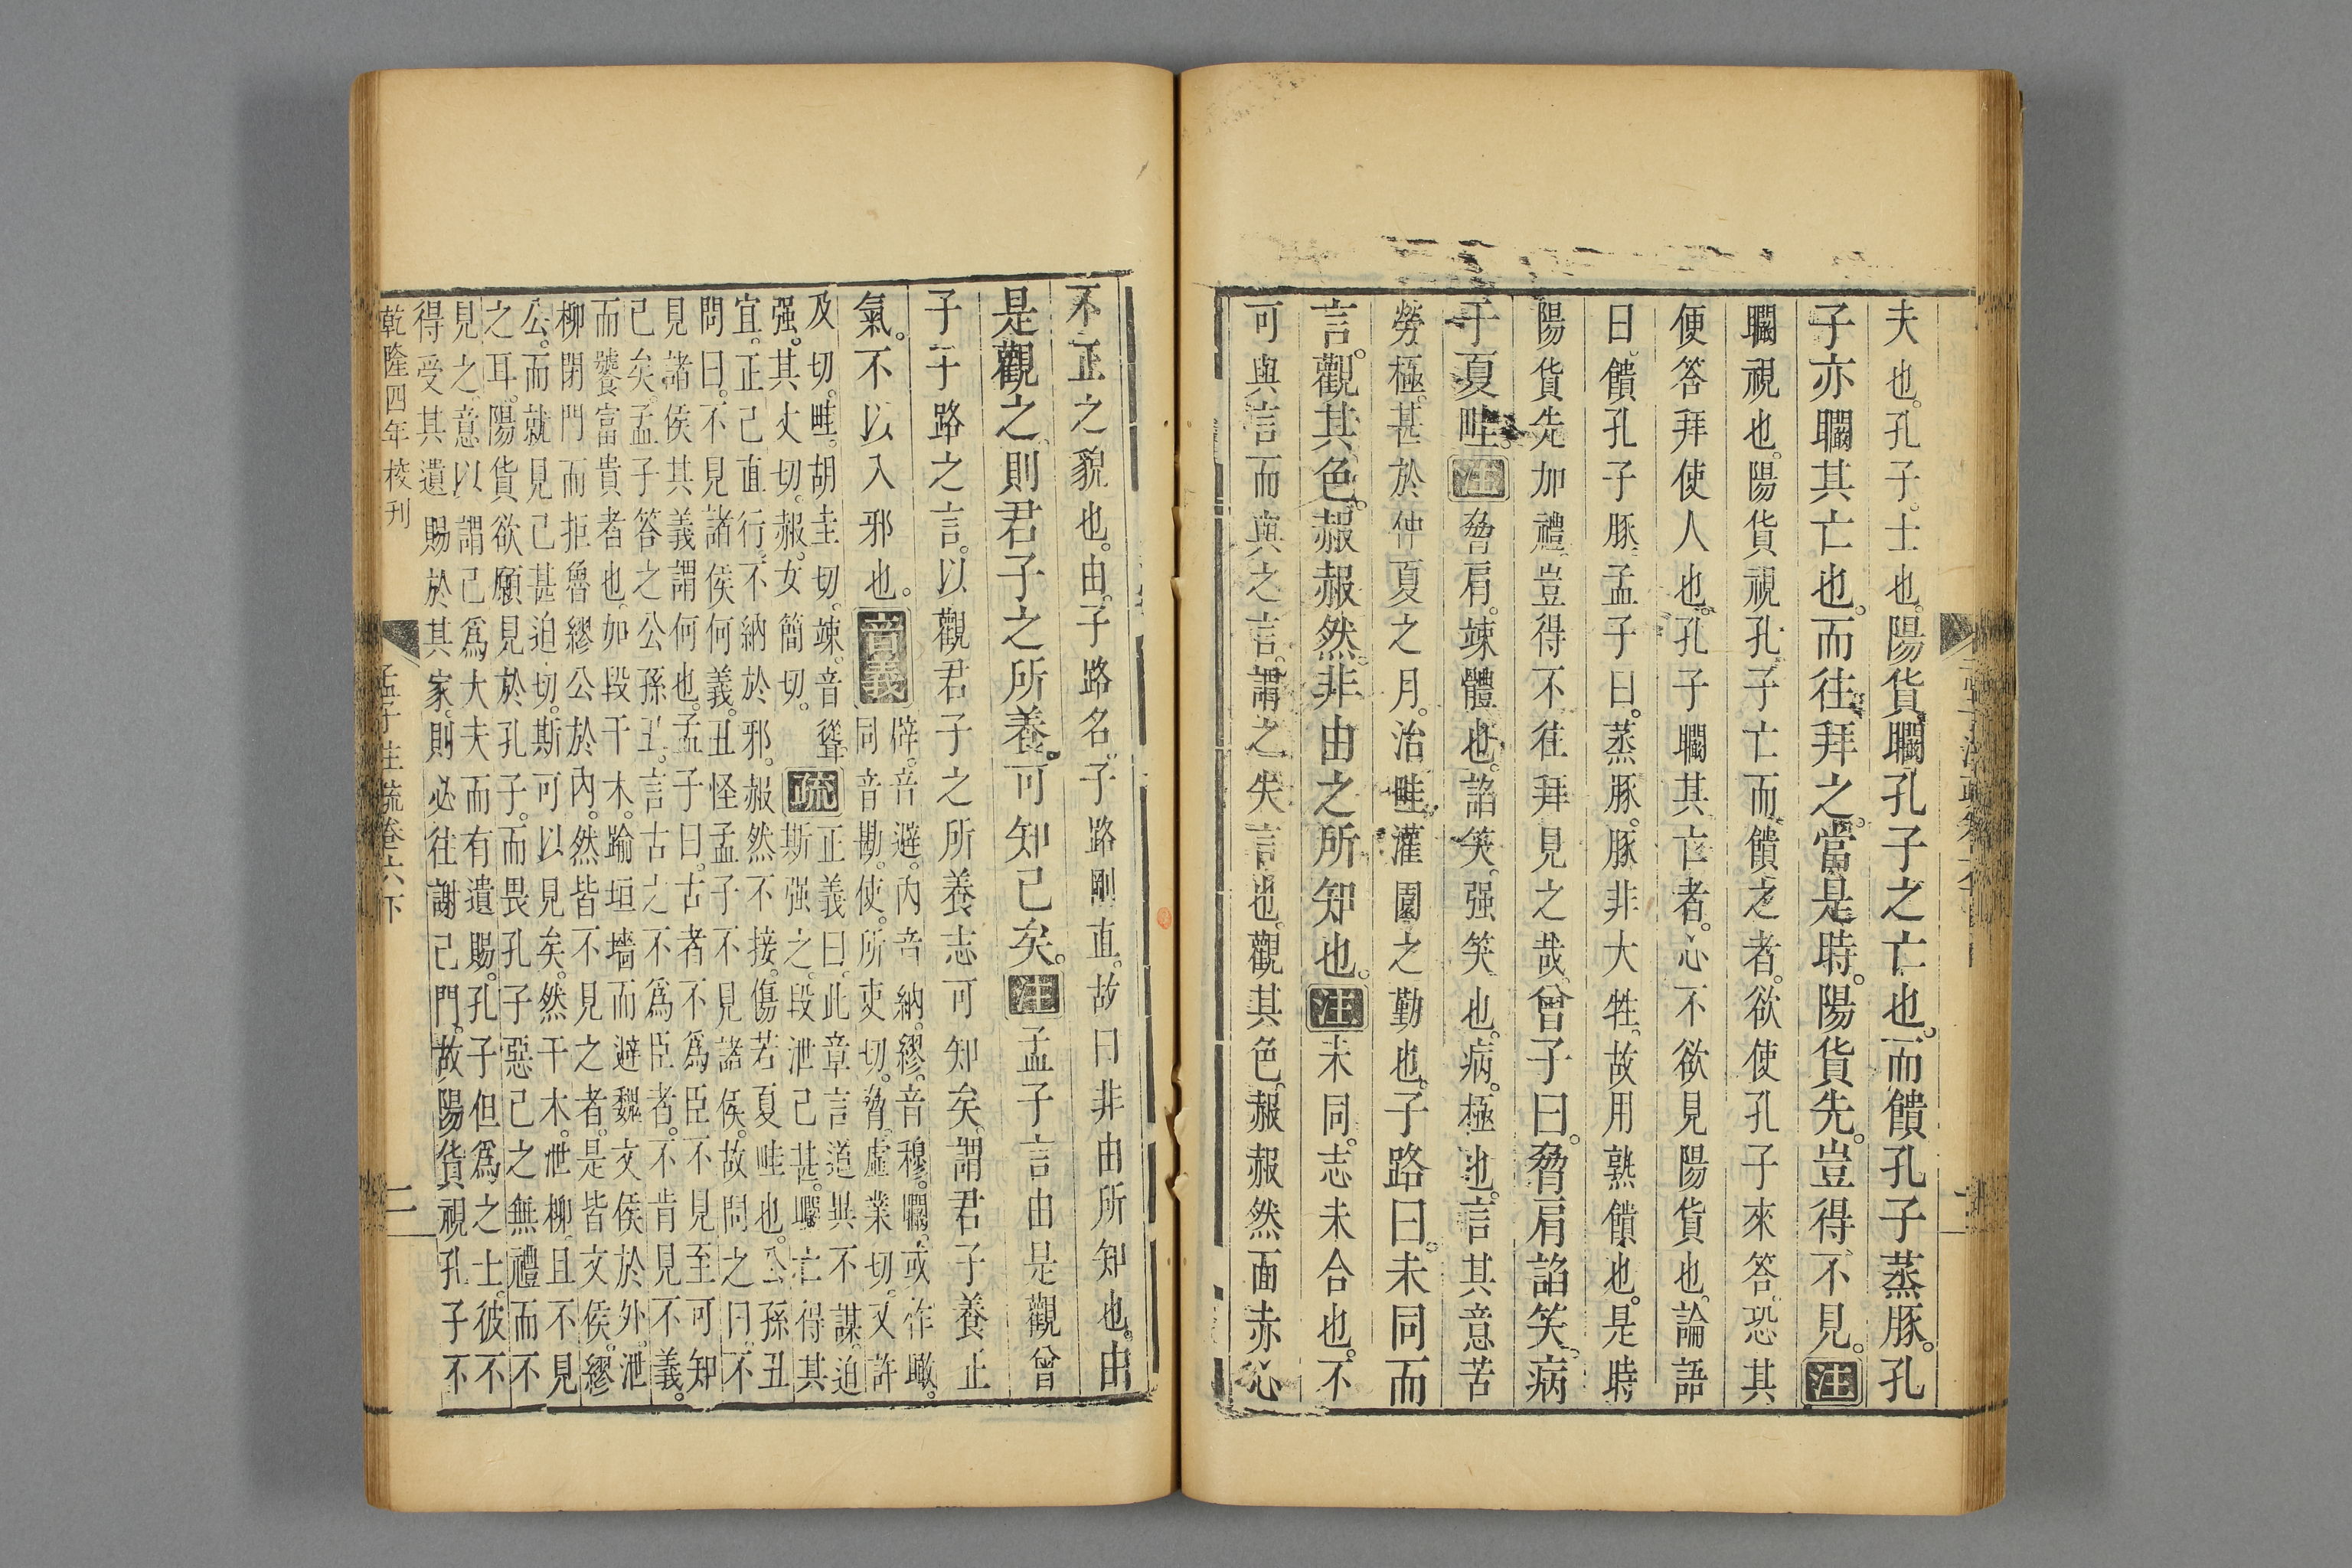 夫也。孔子。士也。陽貨矙孔子之亡也。而饋孔子蒸豚。孔
子亦矙其亡也。而往拜之。當是時。陽貨先。豈得不見。注
矙視也。陽貨視孔子亡而饋之者。欲使孔子來答。恐其
便答拜使人也。孔子矙其亡者。心不欲見陽貨也。論語
曰饋孔子豚。孟子曰。蒸豚。豚非大牲。故用熟饋也。是時
陽貨先加禮。豈得不往拜見之哉。曾子曰。脅肩諂笑。病
于夏畦。注脅肩。竦體也。諂笑。强笑也。病。極也。言其意苦
勞極。甚於仲夏之月。治畦灌園之勤也。子路曰。未同而
言。觀其色。赧赧然。非由之所知也。注未同。志未合也。不
可與言而與之言。謂之失言也。觀其色。赧赧然面赤心
不正之貌也。由。子路名。子路剛直。故曰非由所知也。由
是觀之。則君子之所養。可知已矣。注孟子言由是觀曾
子子路之言。以觀君子之所養志可知矣。謂君子養正
氣。不以入邪也。音義辟。音避。內音納。繆。音穆。矙。或作瞰。
同音勘。使。所吏切。脅。虛業切。又許
及切。畦。胡圭切。竦。音聳。疏正義曰。此章言道異不謀。迫
强。其丈切。赧。女簡切。斯强之。段泄已甚。矙亡得其
宜。正己直行。不納於邪。赧然不接。傷若夏畦也。公孫丑
問曰。不見諸侯何義。丑怪孟子不見諸侯。故問之曰。不
見諸侯其義謂何也。孟子曰。古者不爲臣不見至可知
已矣。孟子答之公孫丑。言古之不爲臣者。不肯見不義。
而饕富貴者也。如段干木。踰垣墻而避魏文侯於外。泄
柳閉門而拒魯繆公於內。然皆不見之者。是皆文侯。繆
公。而就見已甚迫切。斯可以見矣。然干木。泄柳。且不見
之耳。陽貨欲願見於孔子。而畏孔子惡己之無禮而不
見之。意以謂己爲大夫而有遺賜。孔子但爲之士。彼不
得受其遺賜於其家。則必往謝己門。故陽貨視孔子不
乾隆四年校刊
孟子註疏卷六下
二